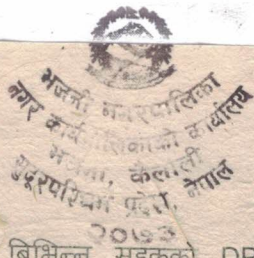 भजनी नगरपालिका
नगर कार्यपालिकाको कार्यालय
भजनी, कैलाली
सुदूरपश्चिम प्रदेश, नेपाल
२०७३
बिभिन्न सडकको